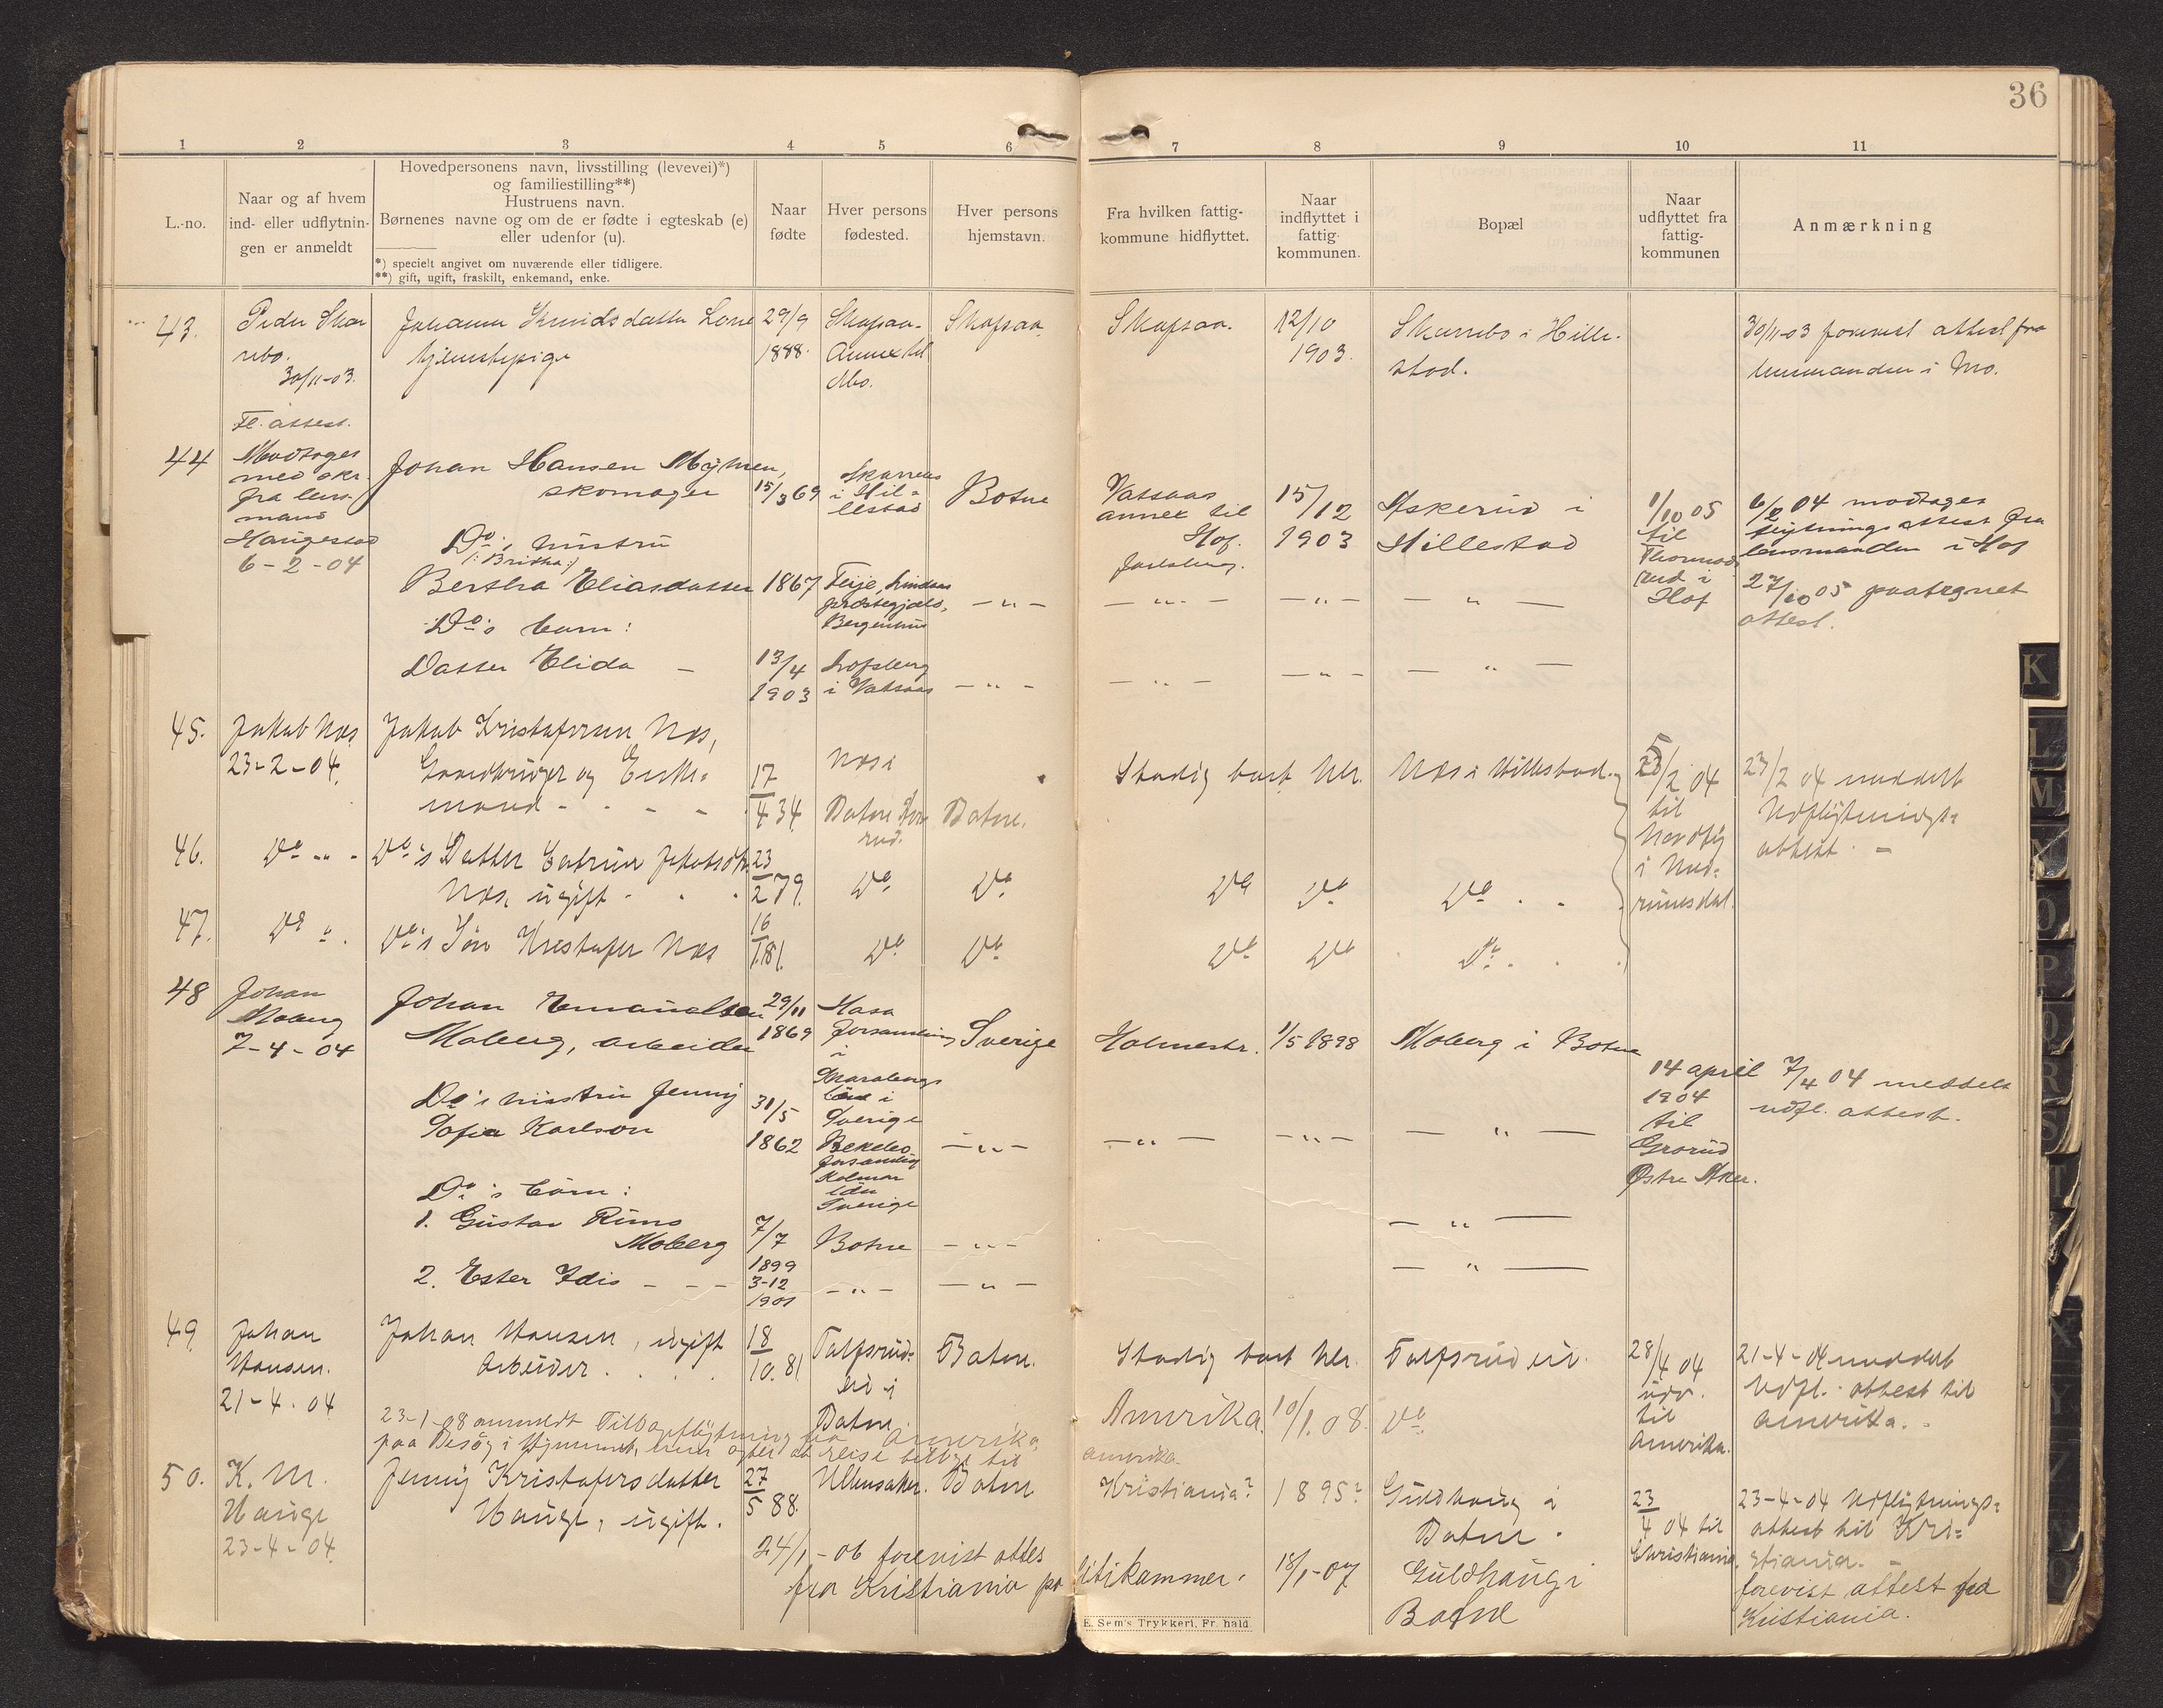 36
1 2 3 4 5 6 7 8 9 10 11
L.-no.
Naar og af hvem
ind- eller udflytnin-
gen er anmeldt
Hovedpersonens navn, livsstilling (levevei)*)
og familiestilling**)
Hustruens navn.
Børnenes navne og om de er fødte i egteskab (e)
eller udenfor (u).
*) specielt angivet om nuværende eller tidligere.
**) gift, ugift, fraskilt, enkemand, enke.
Naar
fødte
Hver persons
fødested.
Hver persons
hjemstavn.
Fra hvilken fattig-
kommune hidflyttet.
Naar
indflyttet i
fattig-
kommunen.
Bopæl
Naar
udflyttet fra
fattig-
kommunen
Anmærkning
43.
Peder Skar
rebo.
30/11-03.
Johanne Knudsdatter Lone
tjenestepige
29/9
1888.
Skafsaa-
Annex til
Mo.
Skafsaa.
Skafsaa.
12/10
1903.
Skarrebo i Hille-
stad.
30/11-03 forevist attest fra
lensmanden i Mo.
Fl. attest.
44
Modtoges
med skr.
fra lens-
mand
Haugestad
6-2-04
Johan Hansen Myhren,
skomager
15/3 69
i Hil-
lestad
Botne
Vatsaas
annex til
Hof.
Jarlsberg.
15/12
1903
Askerud i
Hillestad
1/10 05
til
rud i
Hof
6/2 04 modtoges
flytningsattest fra
lensmanden i Hof
27/10 05 paategnet
attest.
Do's hustru
(: Britha :)
Bertha Eliasdatter
1867
Feije, Lindaas
præstegjæld,
Bergenhus
— " —
— " —
— " —
— " —
Do's barn:
Datter Elida —
13/4
1903
Lofsberg
i Vatsaas
— " —
— " —
— " —
— " —
45.
Jakob Næs
23-2-04.
Jakob Kristofersen Næs,
Gaardbruger og Enke-
mand - - - -
17/4 34
Næs i
Botne
Botne.
Stadig boet her.
Næs i Hillestad.
/2 04
til
i
23/2 04 meddelt
Udflytnings-
attest. -
46.
Do " -
Do's Datter Jakobsdtr.
Næs, ugift - . .
23/2 79.
Do.
Do.
Do
Do
Do . .
47.
Do " .
Do's Søn Kristofer Næs
16/1 81.
Do
Do
Do
Do
Do. . .
48
Johan
Moberg
7-4-04
Johan Emanuelsen
Moberg, arbeider
29/11
1869
forsamling
i
i
Sverige
Sverige
Holmestr.
1/5 1898
Moberg i Botne
14 april
1904
til
Grorud
Østre Aker.
7/4 04 meddelt
udfl. attest.
Do's hustru Jenny
Sofia Karlson
31/5
1862
forsamling
Kalmar
län
Sverige
— " —
— " —
— " —
— " —
Do's børn:
1. Gustav Rims
Moberg
7/7
1899
Botne
— " —
— " —
2. Ester Idis - - -
3-12
1901
— " —
— " —
— " —
49
Johan
Hansen.
21-4-04
Johan Hansen, ugift
Arbeider . . . .
18/10. 81
i
Botne.
Botne.
Stadig boet her.
28/4 04
udv.
til
Amerika.
21-4-04 meddelt
Udfl. attest til
Amerika. -
23-1-08 anmeldt Tilbageflytning fra Amerika,
paa Besøg i Hjemmet, men agter at reise tilbage til
Amerika.
Amerika.
10/1. 08.
Do.
50.
K. M.
Hauge
23-4-04
Jenny Kristofersdatter
Hauge, ugift.
27/5 88.
Ullensaker.
Botne
Kristiania?
1895?
Guldhaug i
Botne.
23/4 04 til
Christiania.
23-4-04 Udflytnings-
attest til Kri-
stiania. -
24/1-06 forevist attes
fra Kristiania politikammer.
18/1-07
Guldhaug i
Botne
forevist attest fra
Kristiania.
E. Sem's Trykkeri, Fr. hald.
K
L
M
N
O
P
Q
R
S
T
X
Y
Z